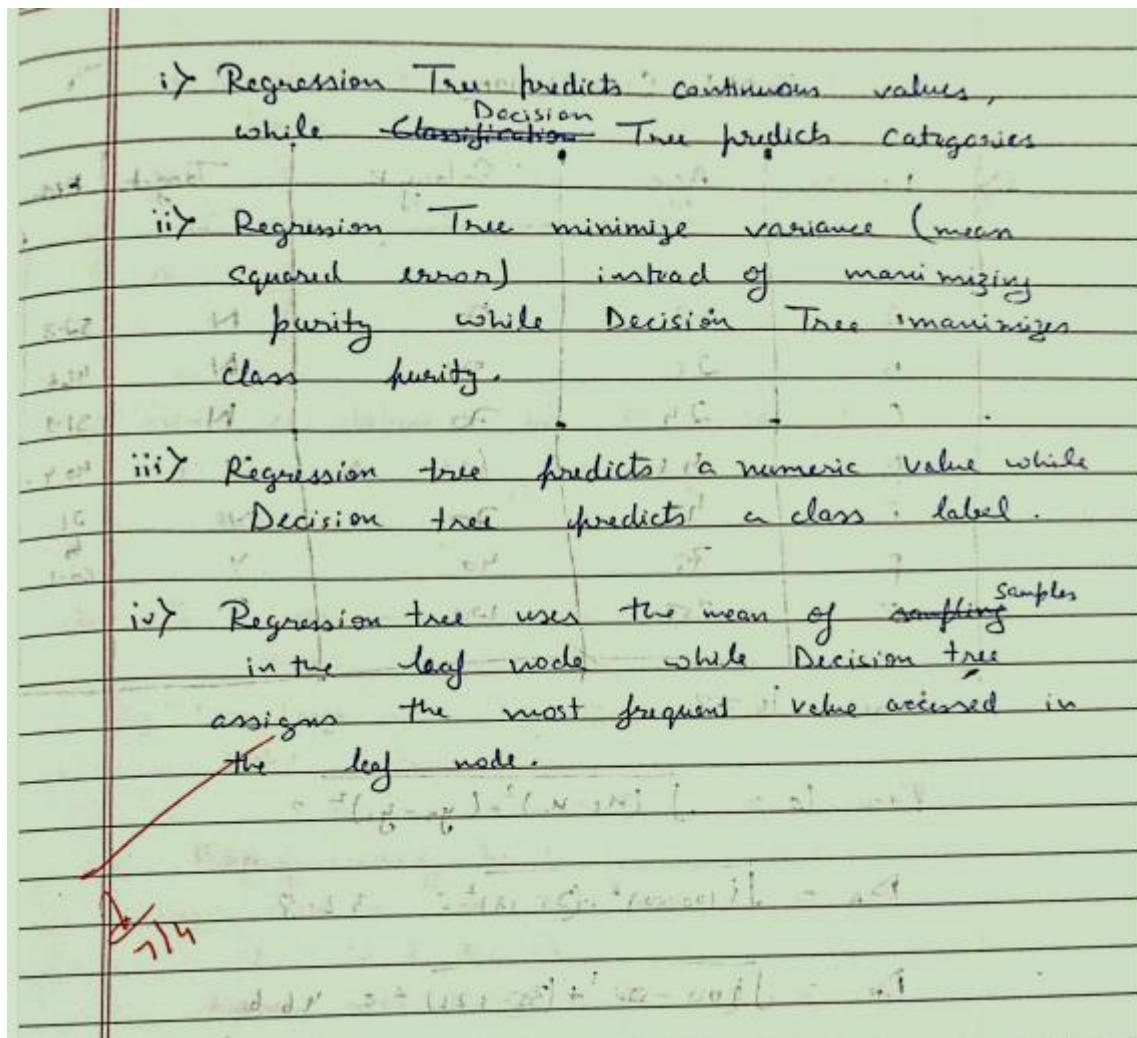 i> Regression Tree predicts continuous values,
Decision
while Classification Tree predicts categories
ii> Regression Tree minimize variance (mean
squared error) instead of maximizing
purity while Decision Tree maximizes
class purity.
iii> Regression tree predicts a numeric value while
Decision tree predicts a class label.
samples
iv> Regression tree uses the mean of sampling
in the leaf node while Decision tree
assigns the most frequent value in
the leaf node.
7/4